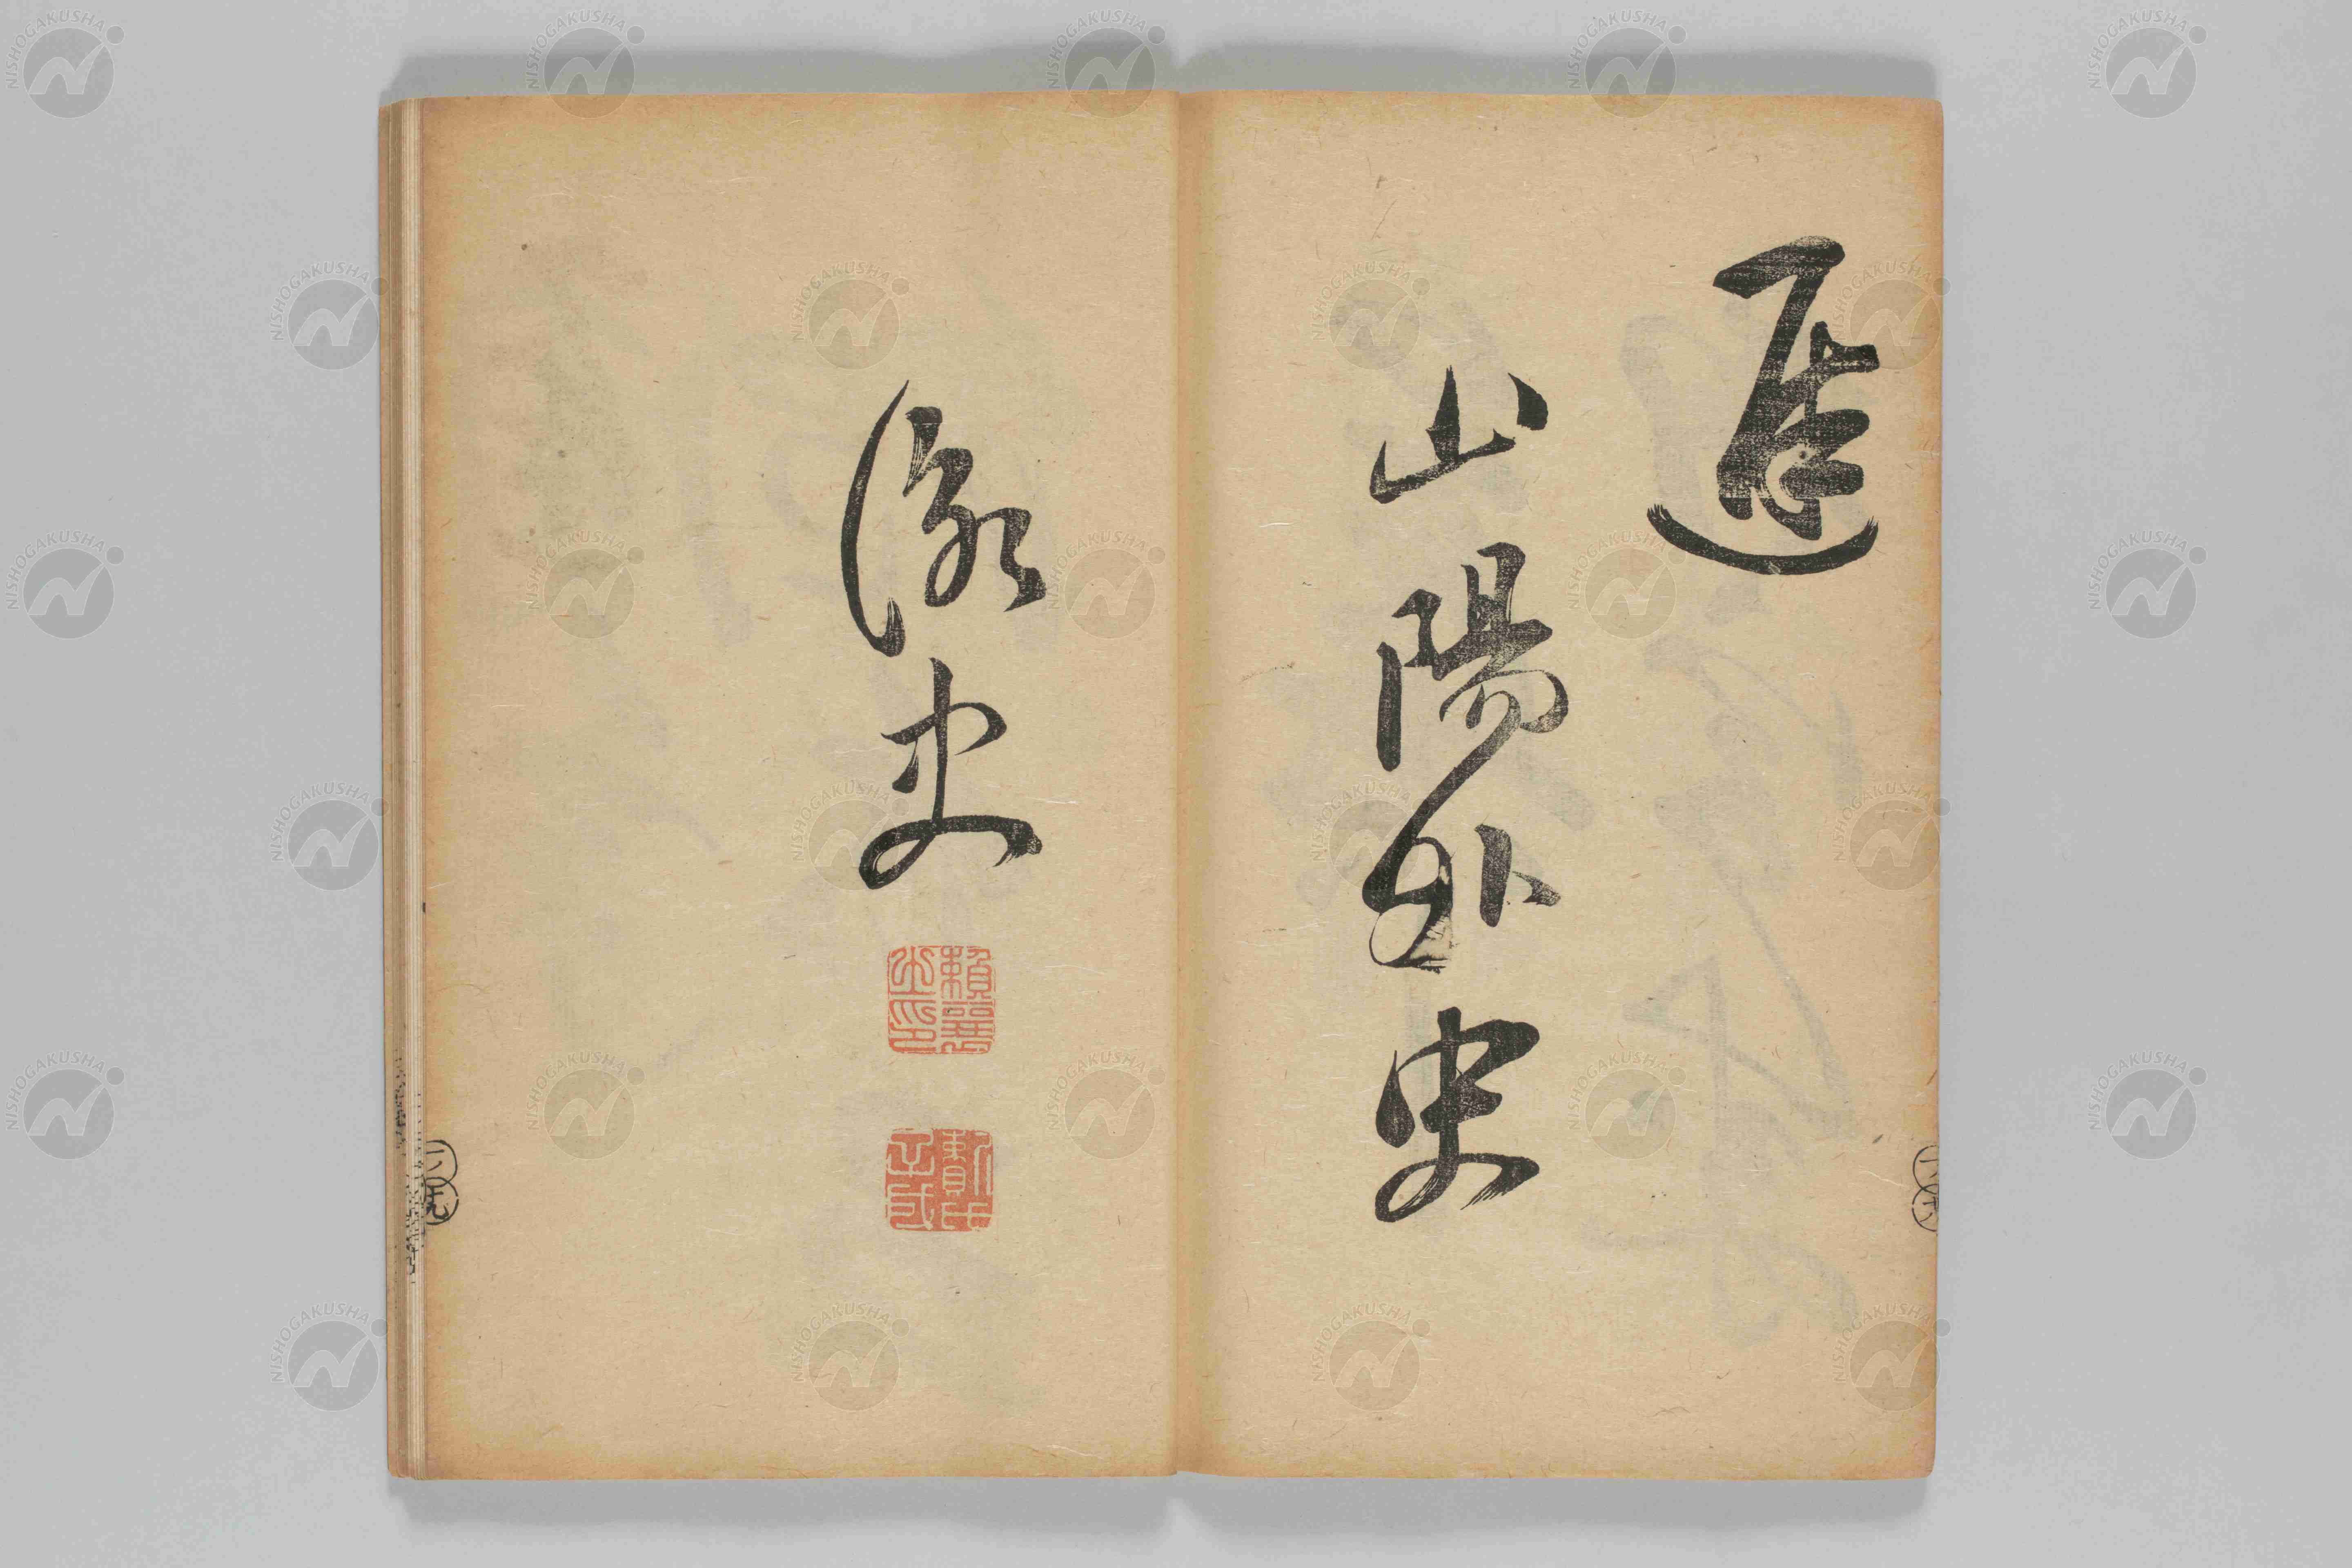 遅
山陽外史
詠史
賴襄之印
賴氏子成
NISHOGAKUSHA